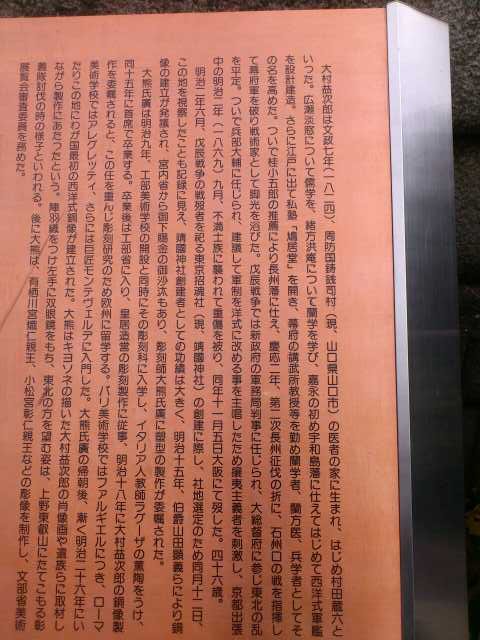 大村益次郎は文政七年(一八二四)、周防国鋳銭司村(現、山口県山口市)の医者の家に生まれ、はじめ村田蔵六と
いった。広瀬淡窓について儒学を、緒方洪庵について蘭学を学び、嘉永の初め宇和島藩に仕えてはじめて西洋式軍艦
を設計建造。さらに江戸に出て私塾「鳩居堂」を開き、幕府の講武所教授等を勤め蘭学者、蘭方医、兵学者としてそ
の名を高めた。ついで桂小五郎の推薦により長州藩に仕え、慶応二年、第二次長州征伐の折に、石州口の戦を指揮し
て幕府軍を破り戦術家として脚光を浴びた。戊辰戦争では新政府の軍務局判事に任じられ、大総督府に参じ東北の乱
を平定。ついで兵部大輔に任じられ、建議して軍制を洋式に改める事を主唱したため攘夷主義者を刺激し、京都出張
中の明治二年(一八六九)九月、不満士族に襲われて重傷を被り、同年十一月五日大阪にて歿した。四十六歳。
明治二年六月、戊辰戦争の戦歿者を祀る東京招魂社(現、靖國神社)の創建に際し、社地選定のため同月十二日、
この地を視察したことも記録に見え、靖國神社創建者としての功績は大きく、明治十五年、伯爵山田顕義らにより銅
像の建立が発議され、宮内省から御下賜金の御沙汰もあり、彫刻師大熊氏廣に塑型の製作が委嘱された。
大熊氏廣は明治九年、工部美術学校の開設と同時にその彫刻科に入学し、イタリア人教師ラグーザの薫陶をうけ、
同十五年に首席で卒業する。卒業後は工部省に入り、皇居造営の彫刻製作に従事、明治十八年に大村益次郎の銅像製
作を委嘱されると、この任を重んじ彫刻研究のため欧州に留学する。パリ美術学校ではファルギエルにつき、ローマ
美術学校ではアレグレッティ、さらには巨匠モンテヴェルデに入門した。大熊氏廣の帰朝後、漸く明治二十六年にい
たりこの地にわが国最初の西洋式銅像が建立された。大熊はキヨソネの描いた大村益次郎の肖像画や遺族らに取材し
ながら製作にあたつたという。陣羽織をつけ左手に双眼鏡をもち、東北の方を望む姿は、上野東叡山にたてこもる彰
義隊討伐の時の様子といわれる。後に大熊は、有栖川宮熾仁親王、小松宮彰仁親王などの彫像を制作し、文部省美術
展覧会審査委員を務めた。